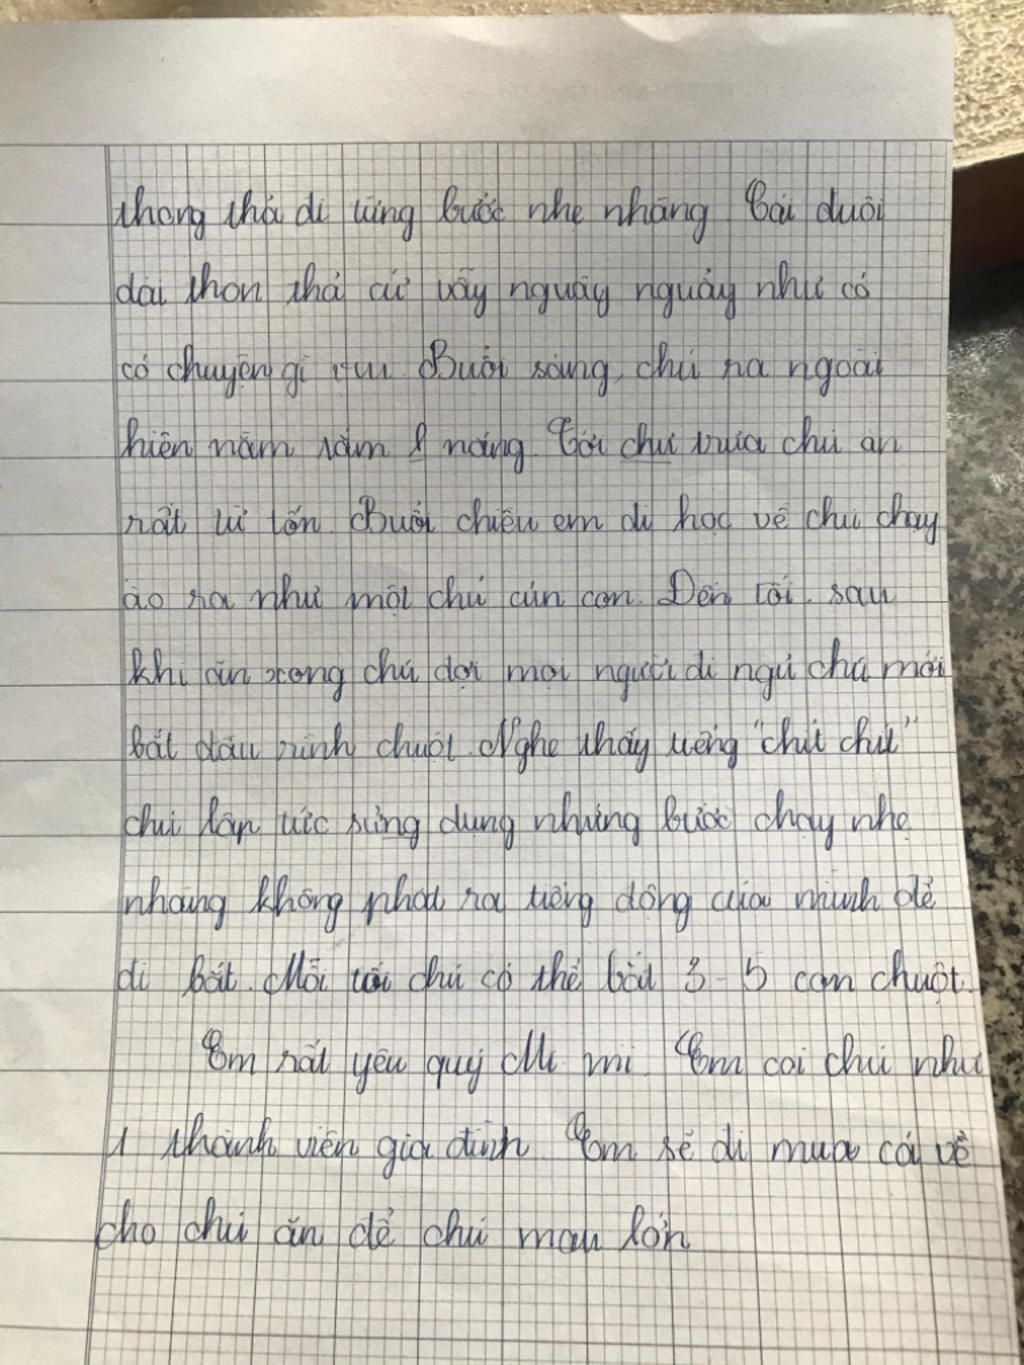 thong thả đi từng bước nhẹ nhàng. Cái đuôi
dài thon thả cứ vẫy nguẩy nguẩy như có
có chuyện gì vui. Buổi sáng, chú ra ngoài
hiên nằm sắm nắng. Tới chư trưa chú ăn
rất từ tốn. Buổi chiều em đi học về chú chạy
ào ra như một chú cún con. Đến tối, sau
khi ăn xong chú đợi mọi người đi ngủ chú mới
bắt đầu rình chuột. Nghe thấy tiếng "chít chít"
chú lập tức sửng dung những bước chạy nhẹ
nhàng không phát ra tiếng động của mình để
đi bắt. Mỗi tối chú có thể bắt 3-5 con chuột.
Em rất yêu quý Mi mi. Em coi chú như
1 thành viên gia đình. Em sẽ đi mua cá về
cho chú ăn để chú mau lớn